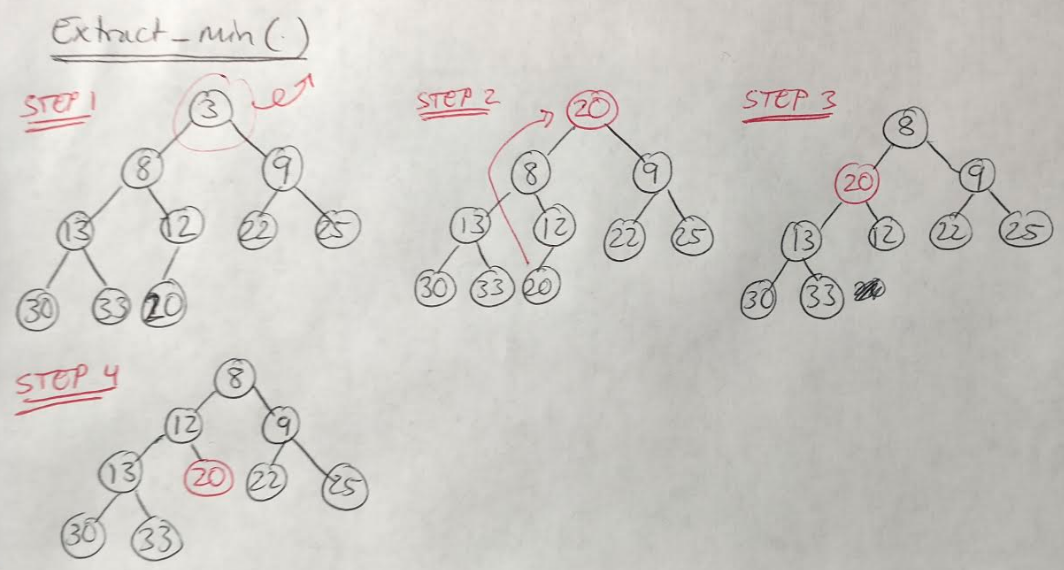 Extract_min(.)
STEP 1
3
8 9
13 12 22 25
30 33 20
STEP 2
20
8 9
13 12 22 25
30 33 20
STEP 3
8
20 9
13 12 22 25
30 33
STEP 4
8
12 9
13 20 22 25
30 33